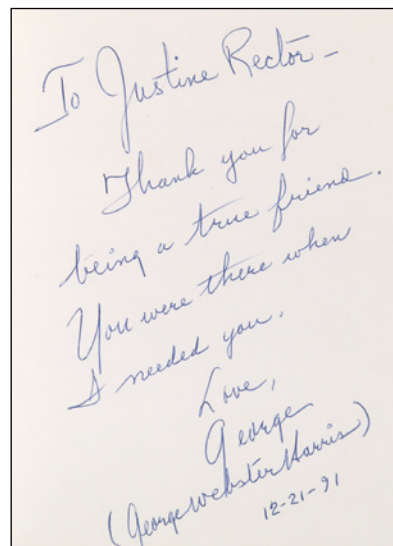 To Justine Rector -
Thank you for
being a true friend.
You were there when
I needed you.
Love,
George
(George Webster Harris)
12-21-91